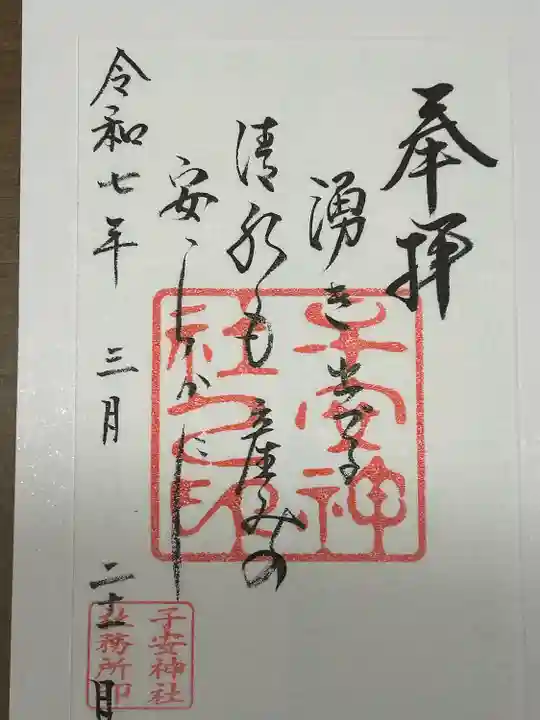 奉拝
湧き出づる
清水も産みの
安
令和七年 三月 二十 日
子安神
社
子安神社
社務所印